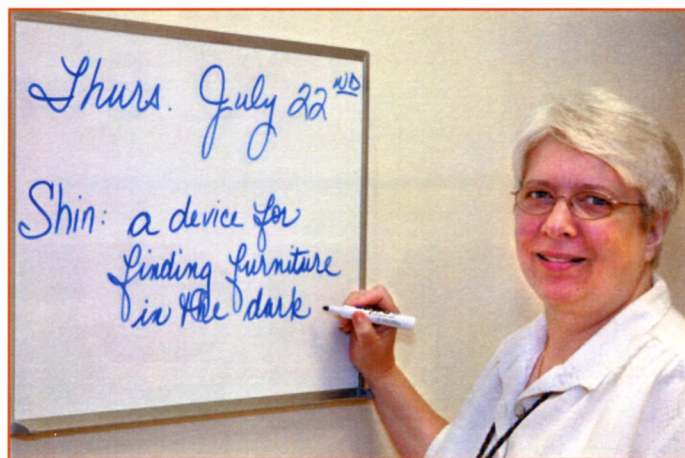 Thurs. July 22ND
Shin: a device for
finding furniture
in the dark